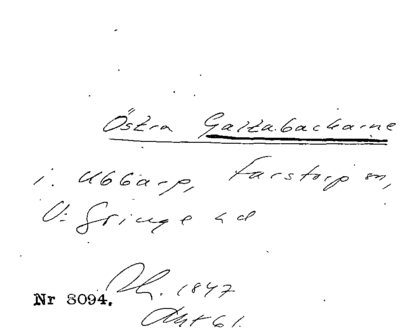 Östra Galtabackarne
i. Ubbarp, Farstorp sn,
V: Göinge hd
1847
Nr 8094.
Akt 61.